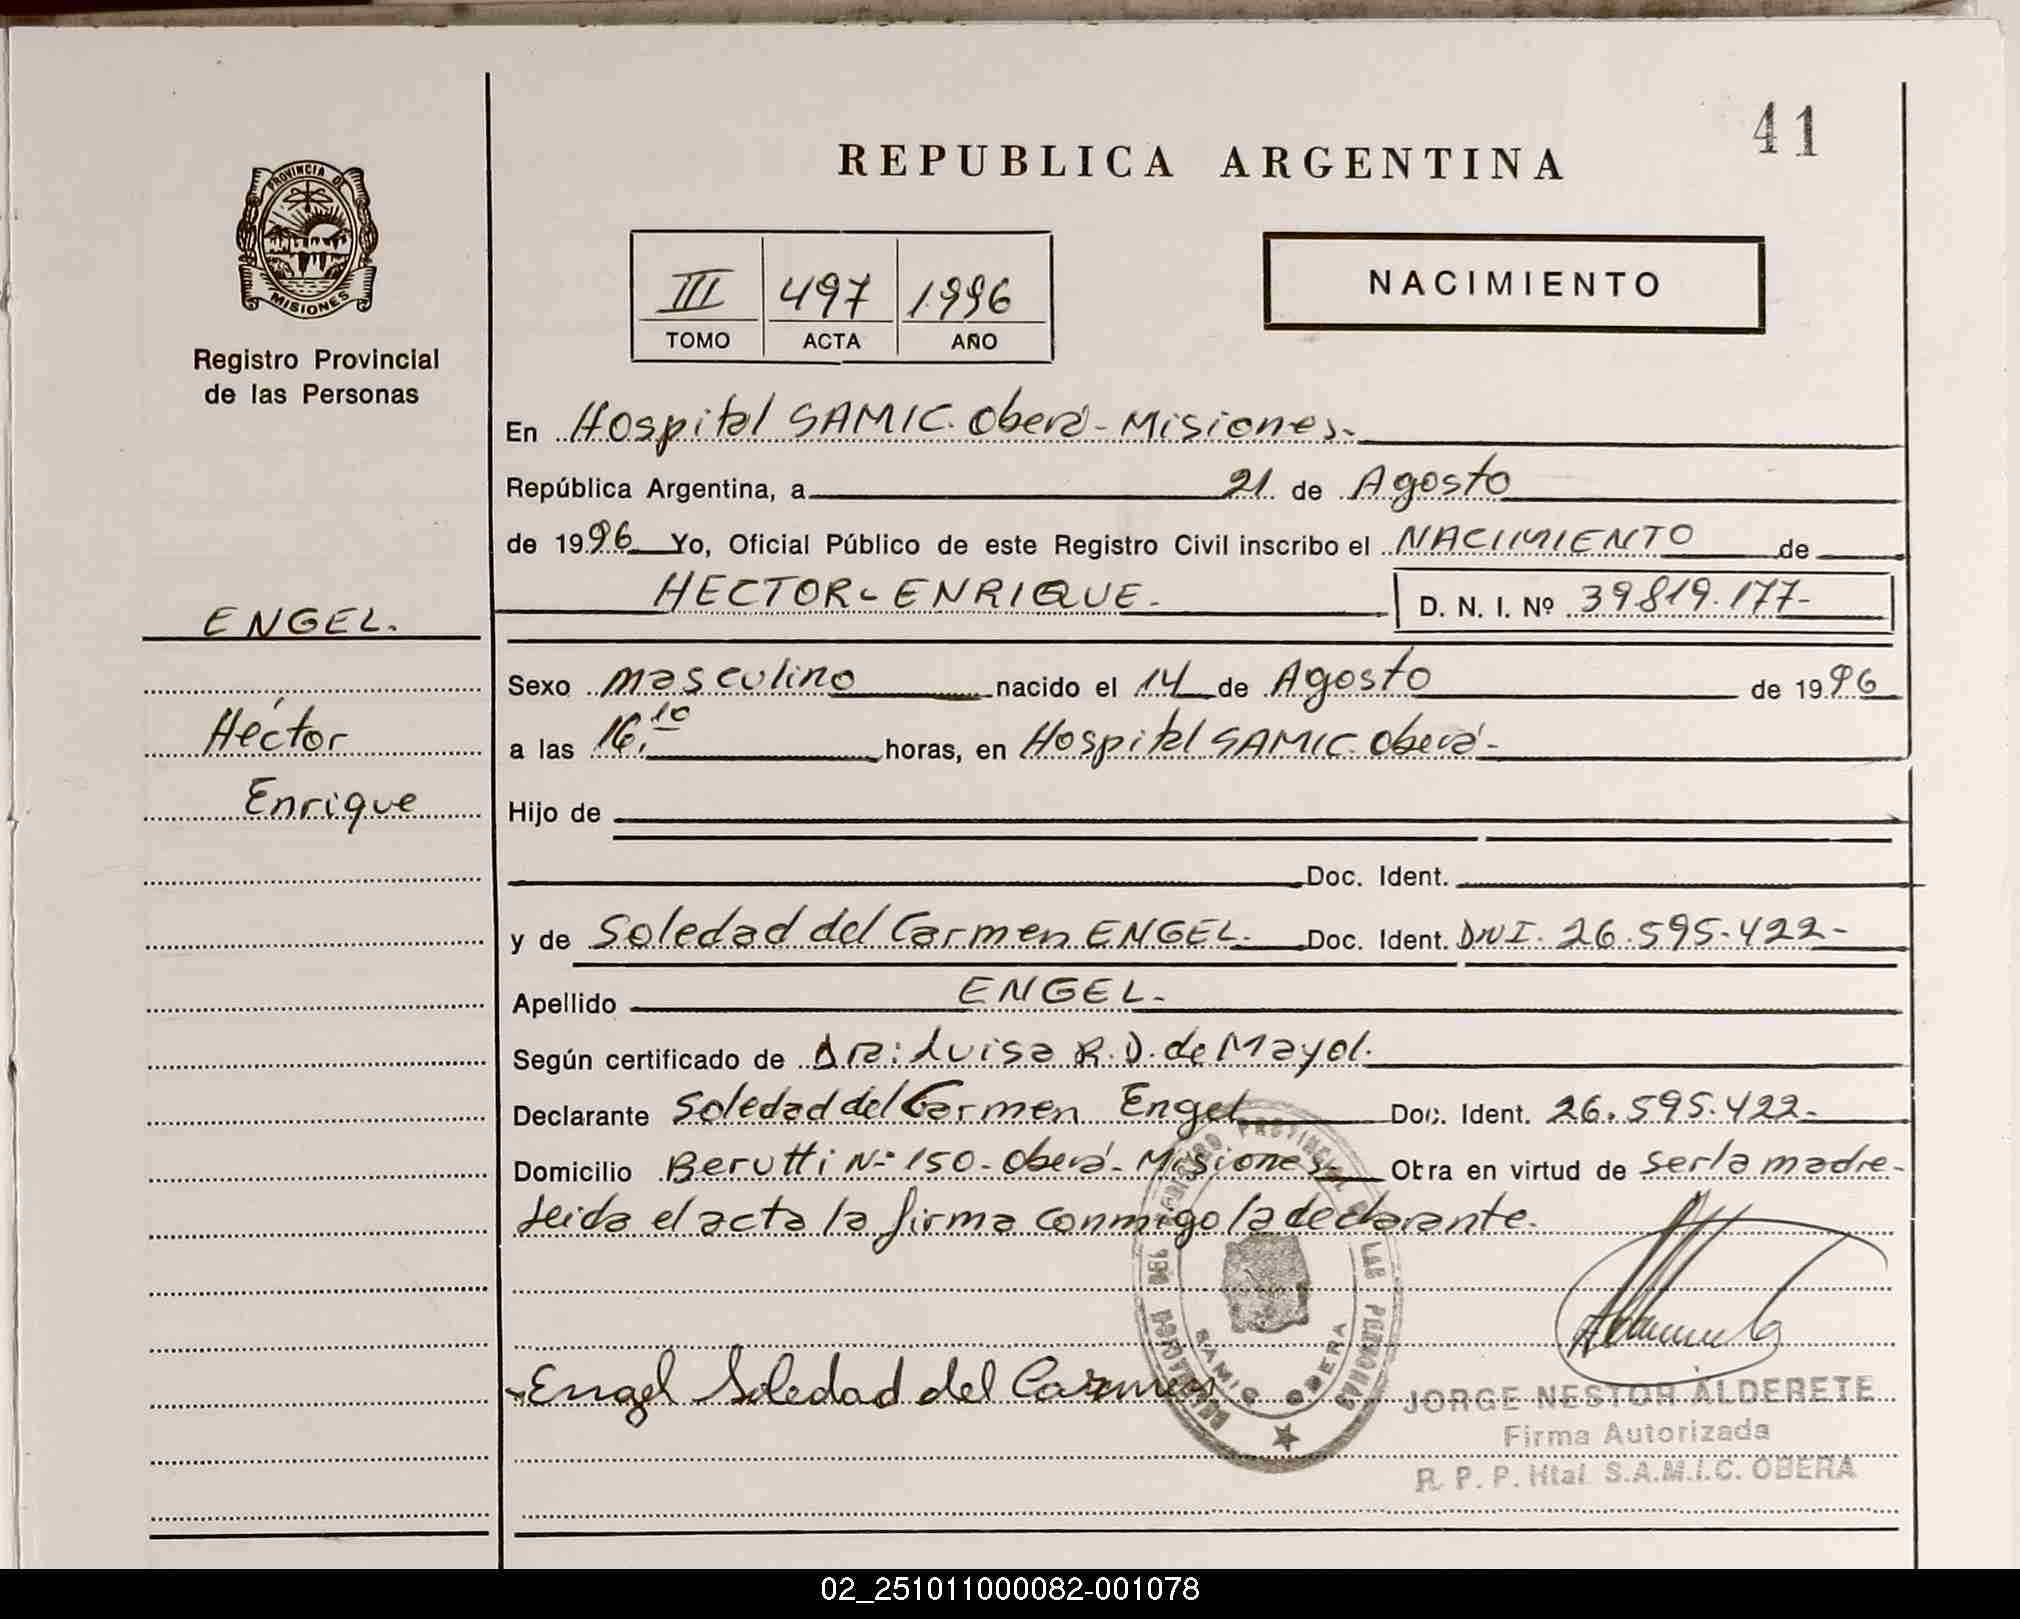 41
REPUBLICA ARGENTINA
PROVINCIA DE
MISIONES
Registro Provincial
de las Personas
III 497 1996
TOMO ACTA AÑO
NACIMIENTO
En Hospital SAMIC. Oberá - Misiones.-
República Argentina, a 21 de Agosto
de 1996 Yo, Oficial Público de este Registro Civil inscribo el NACIMIENTO de
HECTOR - ENRIQUE. - D. N. I. Nº 39.819.177-
ENGEL.
Héctor
Enrique
Sexo masculino nacido el 14 de Agosto de 1996
a las 16.10 horas, en Hospital SAMIC. Oberá -
Hijo de
Doc. Ident.
y de Soledad del Carmen ENGEL. Doc. Ident. DNI. 26.595.422-
Apellido ENGEL.
Según certificado de DRA: Luisa R. D. de Mayol.
Declarante Soledad del Carmen Engel Doc. Ident. 26.595.422-
Domicilio Berutti Nº 150 - Oberá - Misiones - Obra en virtud de ser la madre -
Leida el acta la firma conmigo la declarante.
DELEGACION DEL REGISTRO PROVINCIAL DE LAS PERSONAS
SAMIC OBERA
Engel Soledad del Carmen
JORGE NESTOR ALDERETE
Firma Autorizada
R. P. P. Htal. S.A.M.I.C. OBERA
02_251011000082-001078